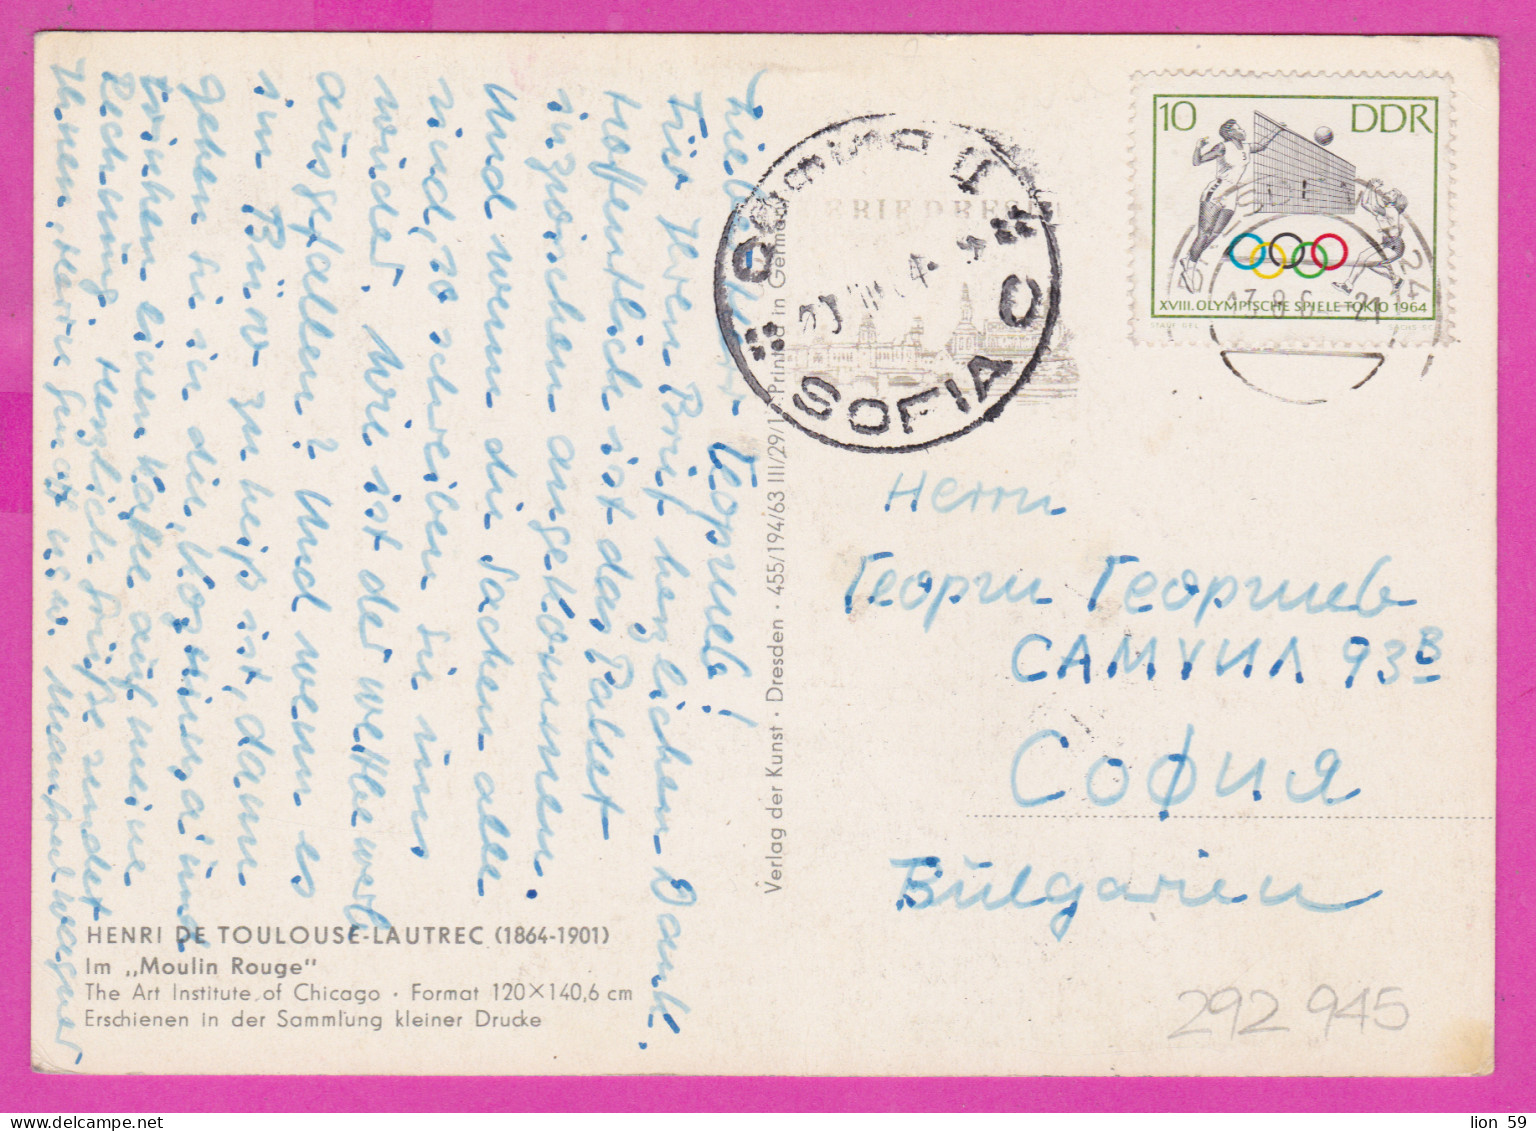 Lieber Herr Георгиев!
Für Ihren Brief herzlichen Dank.
Hoffentlich ist das Paket
inzwischen angekommen.
Und wenn die Sachen alle
sind, so schreiben Sie uns
wieder. Wie ist der Wettbewerb
ausgefallen? Und wenn es
im Büro zu heiß ist, dann
gehen Sie in die, und
trinken einen Kaffee auf meine
Rechnung. Herzliche Grüße sendet
Ihnen, Herrn u.s.w. Manfred Wagner
HENRI DE TOULOUSE-LAUTREC (1864-1901)
Im „Moulin Rouge"
The Art Institute of Chicago · Format 120×140,6 cm
Erschienen in der Sammlung kleiner Drucke
Verlag der Kunst · Dresden · 455/194/63 III/29/1 · Printed in Germany
SOFIA
10 DDR
XVIII. OLYMPISCHE SPIELE TOKIO 1964
Herrn
Георги Георгиев
САМУИЛ 93В
София
Bulgarien
292 945
lion 59